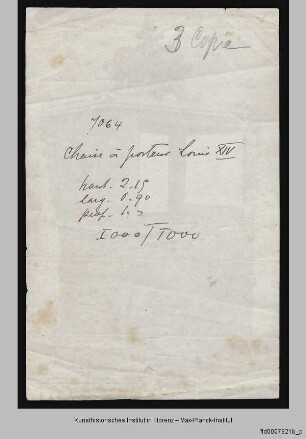 3 Copie
7064
Chaise à porteur Louis XIV
haut. 2.15
larg. 0.90
prof. 1.
Kunsthistorisches Institut in Florenz – Max-Planck-Institut